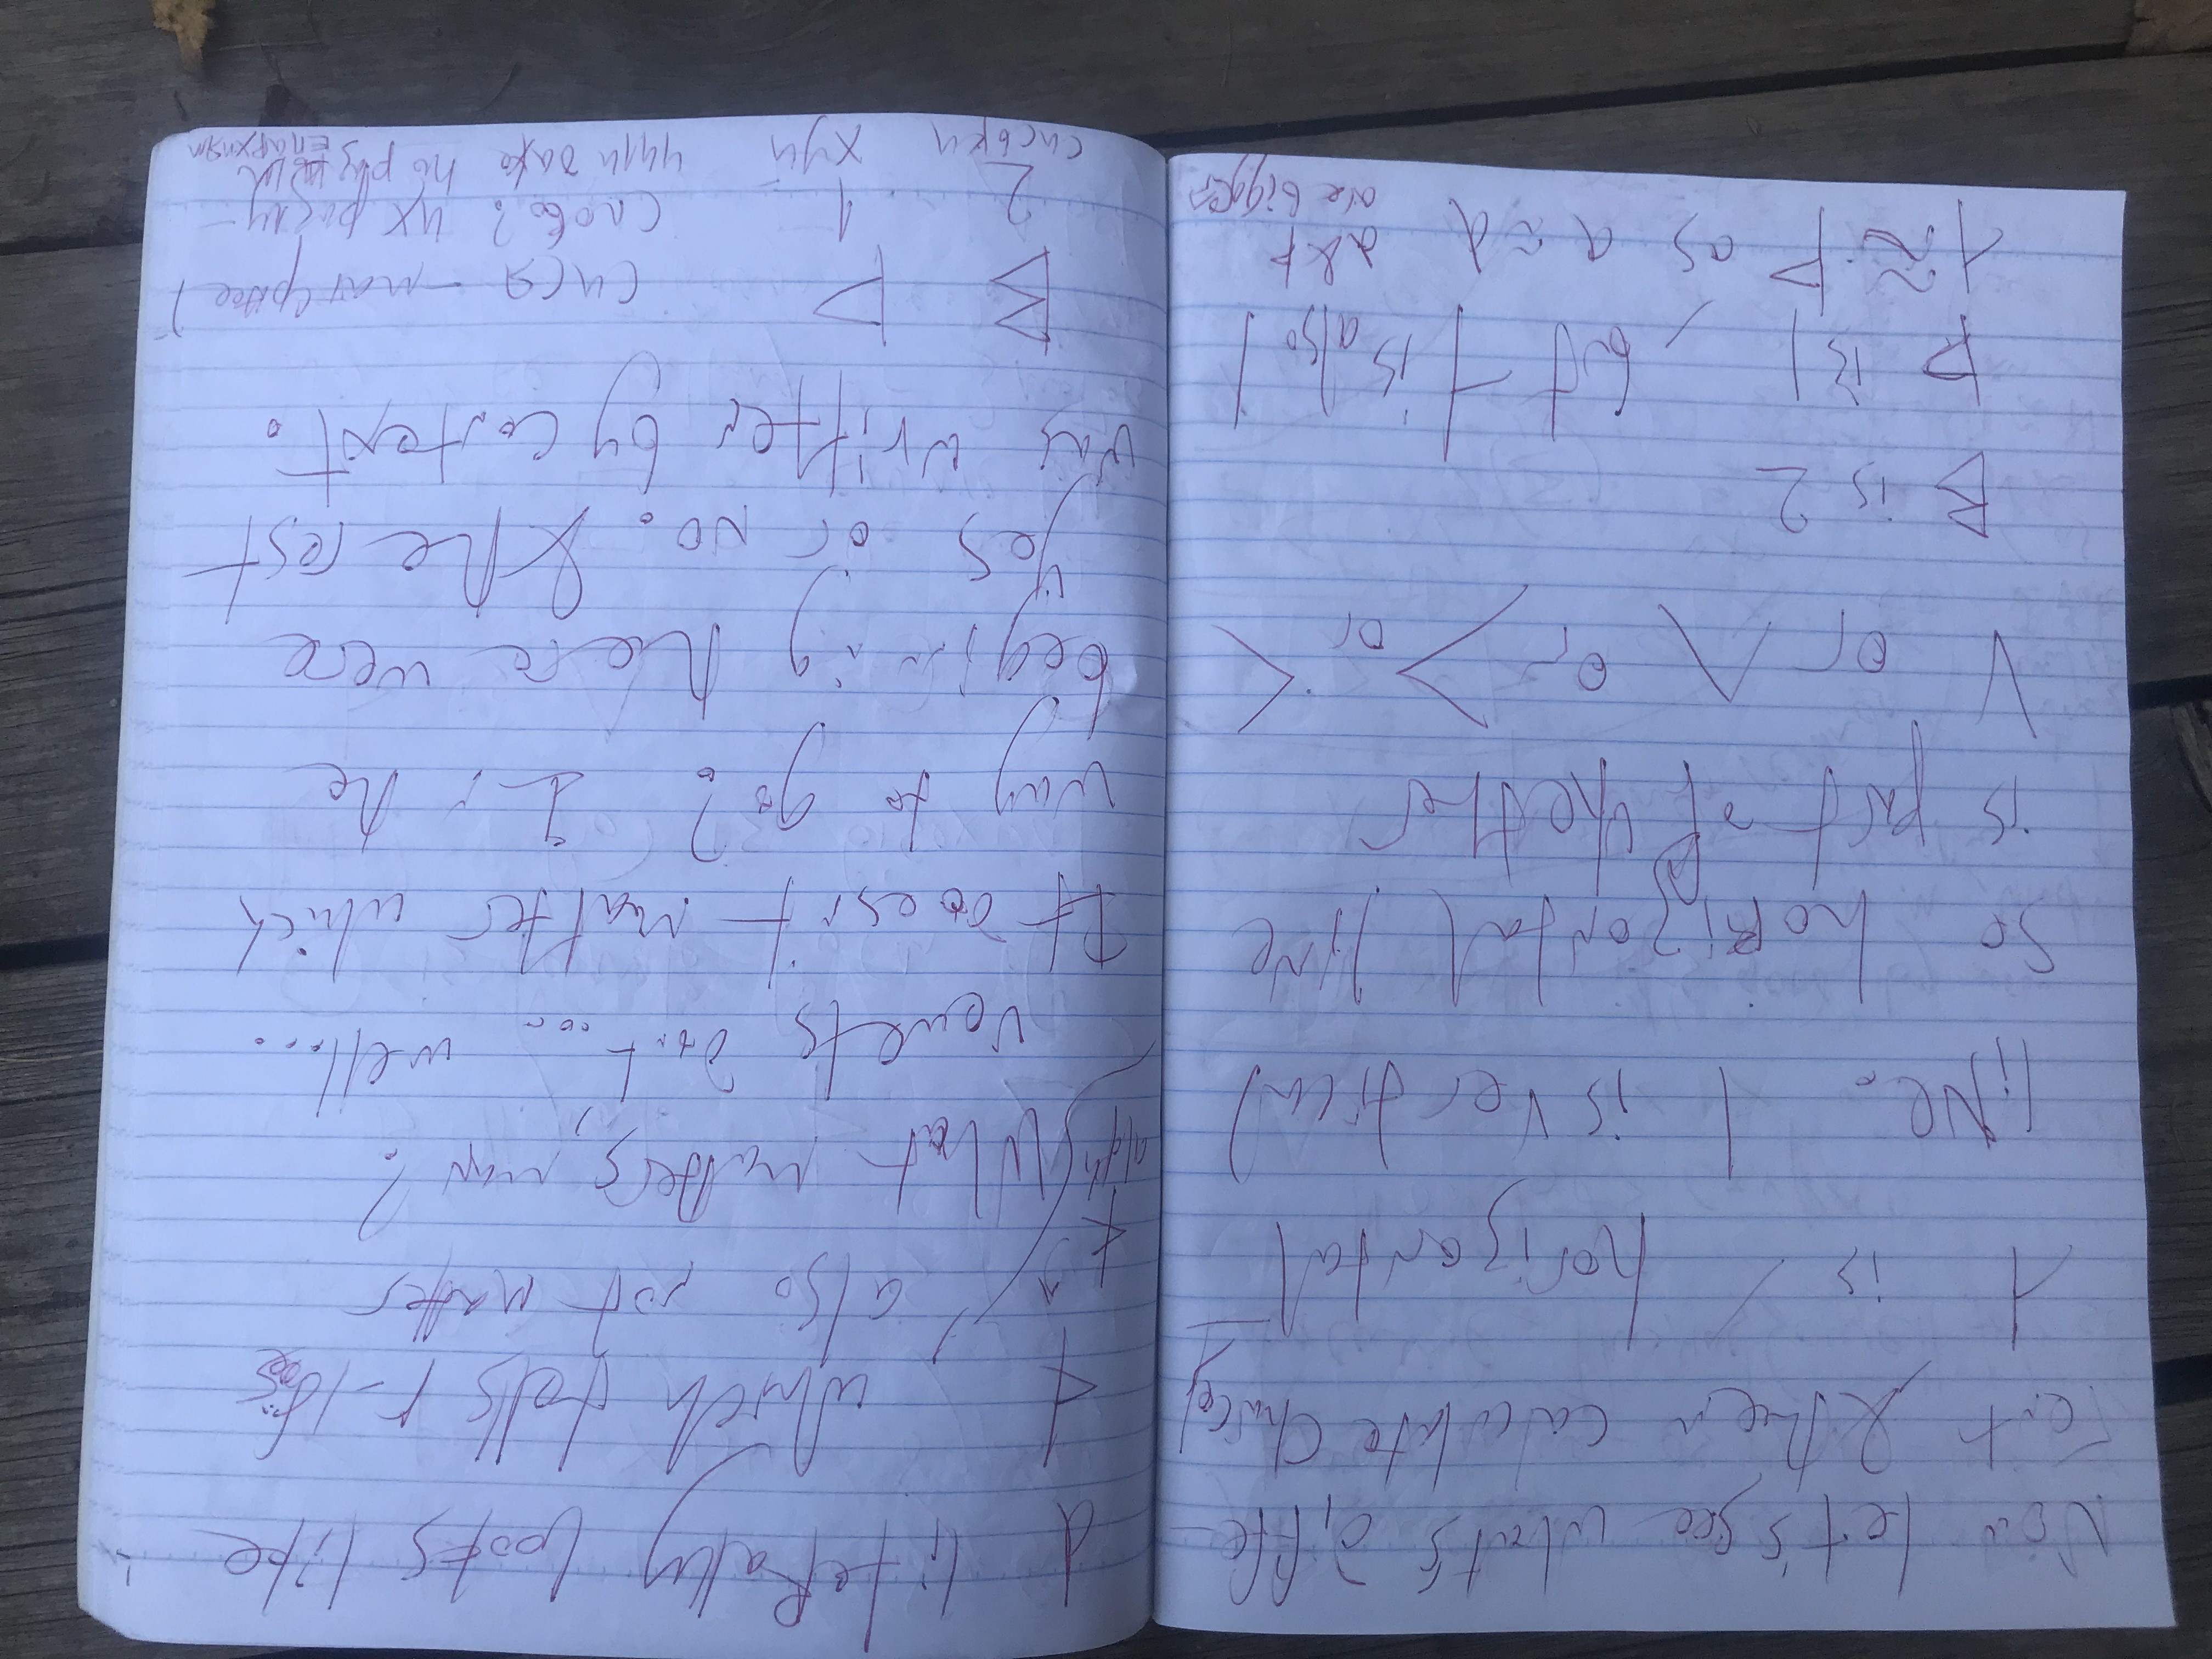 Now let's see what's diffe-
rent & then calculate choices
is / horizontal
line. | is vertical
So horizontal line
is part of whether
V or Λ or > or <
B is 2
Þ is 1, but ⊣ is also 1
≈ Þ as a
are bigger
d literally looks like
, which tells r-l
also not matter
What matters, man?
vowels don't... well...
It doesn't matter which
way to go? In the
begining there were
yes or no. & the rest
was written by context.
B P сися – мат(ерное)
2 1 слово? их разлу-
сиськи хуй чили даже по разным
епархиям